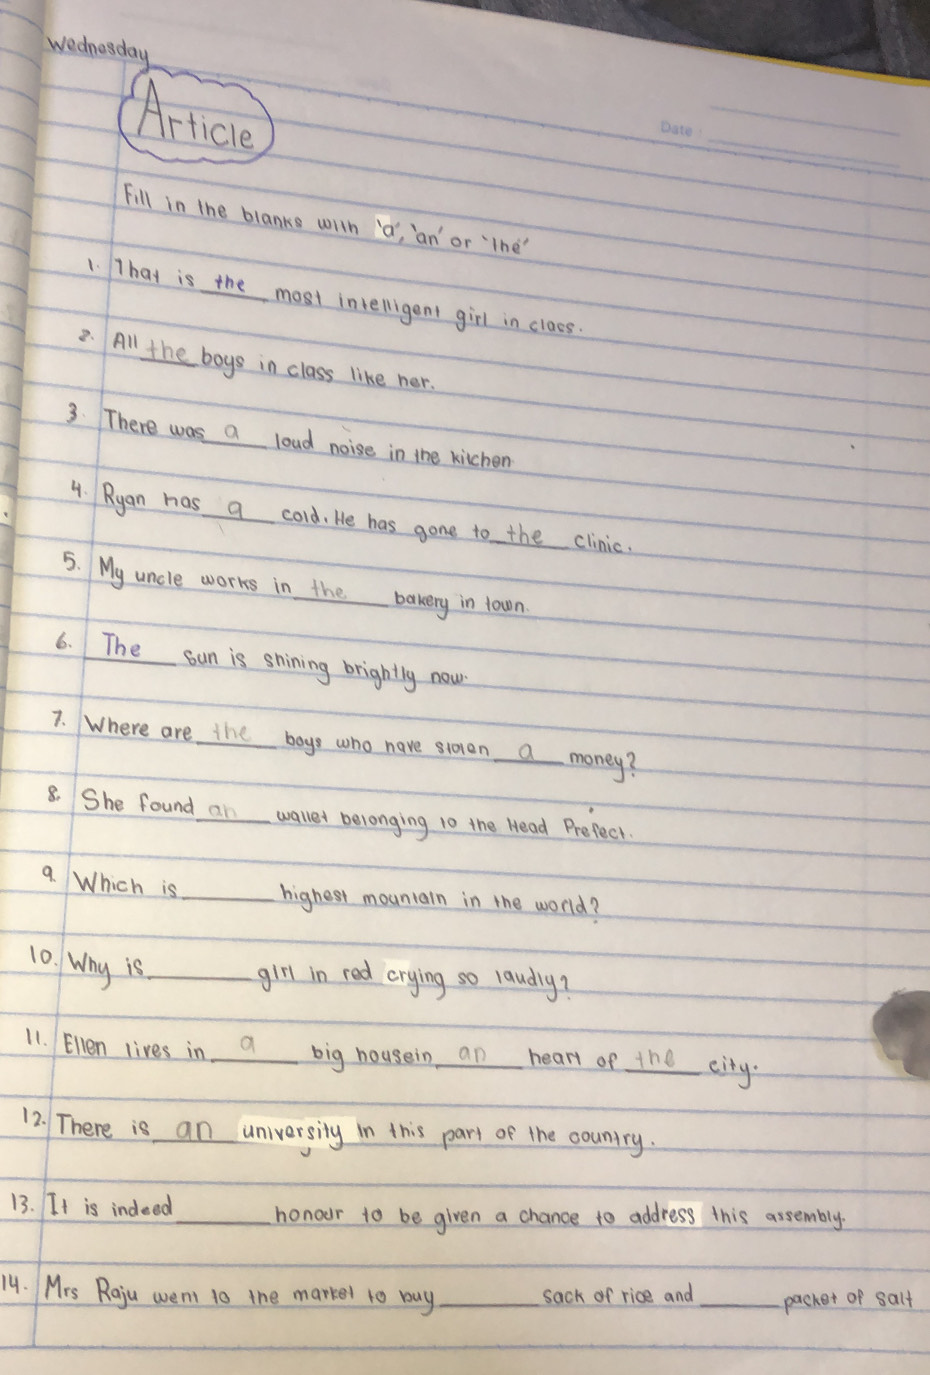 Wednesday
Article
Date :
Fill in the blanks with 'a', 'an' or 'the'
1. That is the most intelligent girl in class.
2. All the boys in class like her.
3. There was a loud noise in the kitchen.
4. Ryan has a cold. He has gone to the clinic.
5. My uncle works in the bakery in town.
6. The sun is shining brightly now.
7. Where are the boys who have stolen a money?
8. She found an wallet belonging to the Head Prefect.
9. Which is ______ highest mountain in the world?
10. Why is ______ girl in red crying so laudly?
11. Ellen lives in a big housein an heart of the city.
12. There is an university in this part of the country.
13. It is indeed ______ honour to be given a chance to address this assembly.
14. Mrs Raju went to the market to buy ______ sack of rice and ______ packet of salt